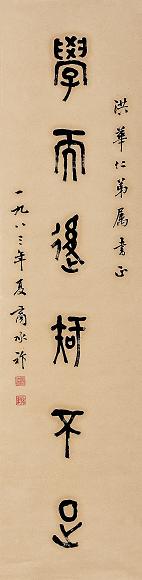 學而後知不足
洪華仁弟属書正
一九八三年夏商承祚